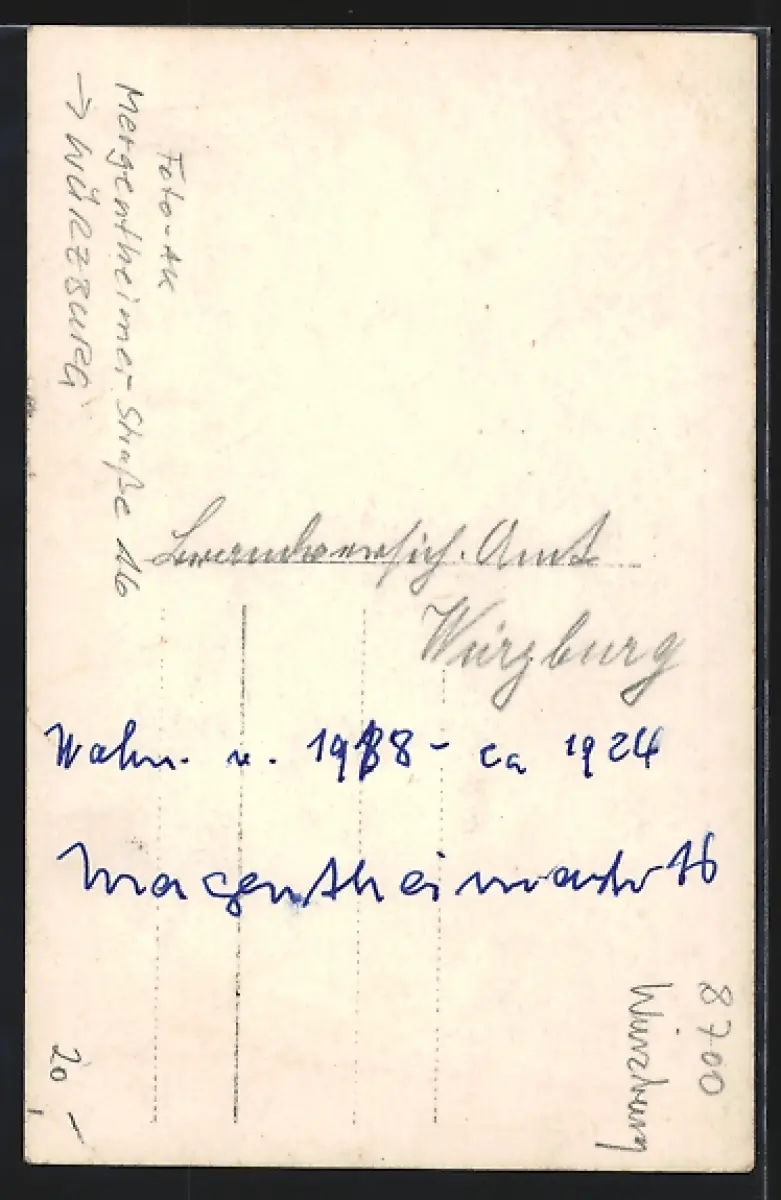 Foto-AK
Mergentheimer Straße 16
→ WÜRZBURG
Amt
Würzburg
Wohn. v. 1918 - ca 1924
Mergentheimerstr 16
8700
Würzburg
20,-